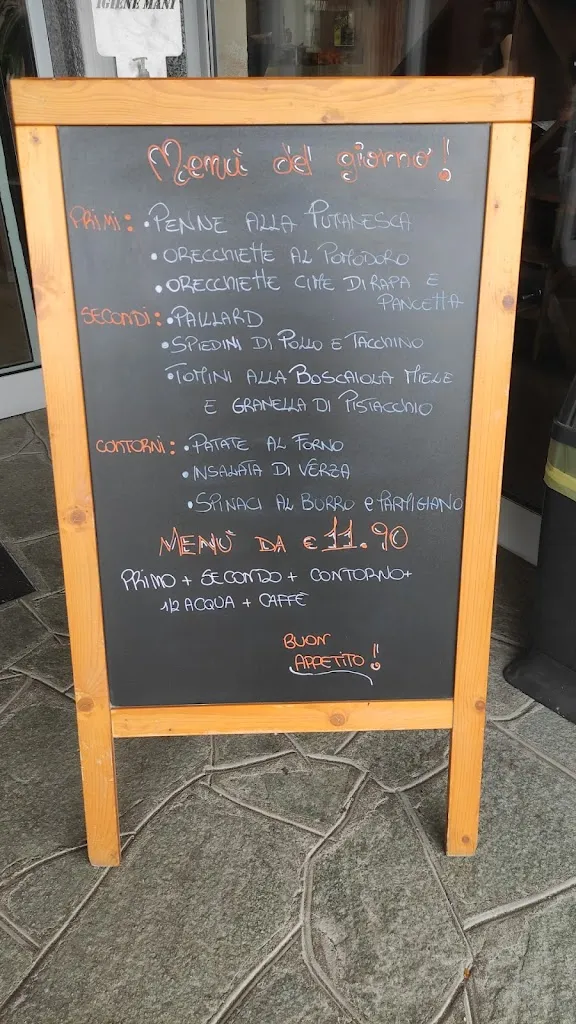 IGIENE MANI
Menù del giorno!
PRIMI: • PENNE ALLA PUTTANESCA
• ORECCHIETTE AL POMODORO
• ORECCHIETTE CIME DI RAPA E
PANCETTA
SECONDI: • PAILLARD
• SPIEDINI DI POLLO E TACCHINO
• TOMINI ALLA BOSCAIOLA MIELE
E GRANELLA DI PISTACCHIO
CONTORNI: • PATATE AL FORNO
• INSALATA DI VERZA
• SPINACI AL BURRO e PARMIGIANO
MENÙ DA € 11.90
PRIMO + SECONDO + CONTORNO +
1/2 ACQUA + CAFFÈ
BUON
APPETITO!